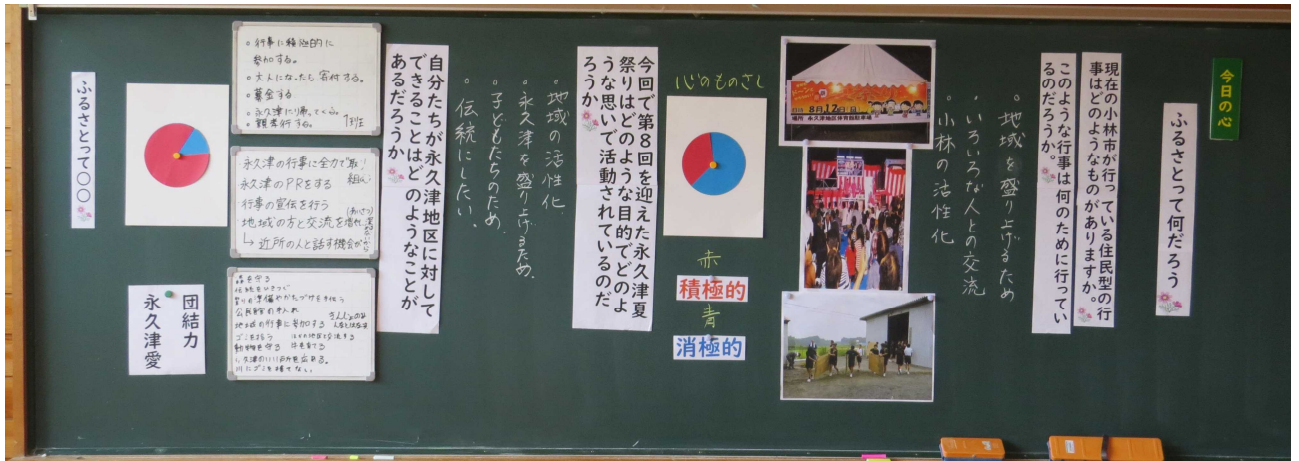 今日の心
ふるさとって何だろう
現在の小林市が行っている住民型の行
事はどのようなものがありますか。
このような行事は何のために行ってい
るのだろうか。
・地域を盛り上げるため
・いろいろな人との交流
・小林の活性化
8月12日
場所 永久津地区体育館駐車場
心のものさし
赤
積極的
青
消極的
今回で第8回を迎えた永久津夏
祭りはどのような目的でどのよ
うな思いで活動されているのだ
ろうか
・地域の活性化
・永久津を盛り上げるため、
・子どもたちのため、
・伝統にしたい。
自分たちが永久津地区に対して
できることはどのようなことが
あるだろうか
・行事に積極的に
参加する。
・大人になったら寄付する。
・募金する
・永久津に帰ってくる。
・親孝行する。
1班
永久津の行事に全力で取り
組む
永久津のPRをする
行事の宣伝を行う
地域の方と交流を増やす
(あいさつ)
↳近所の人と話す機会
森を守る
伝統をひきつぐ
祭りの準備やかたづけを手伝う
公民館の手入れ
地域の行事に参加する
ゴミを拾う
動物を守る
牛を育てる
川にゴミを捨てない
団結力
永久津愛
ふるさとって〇〇